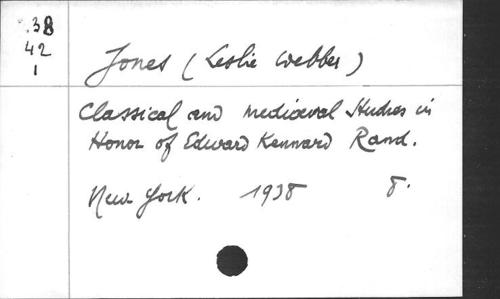 .38
42
1
Jones (Leslie Webber)
Classical and mediaeval Studies in
Honor of Edward Kennard Rand.
New York. 1938 8°.